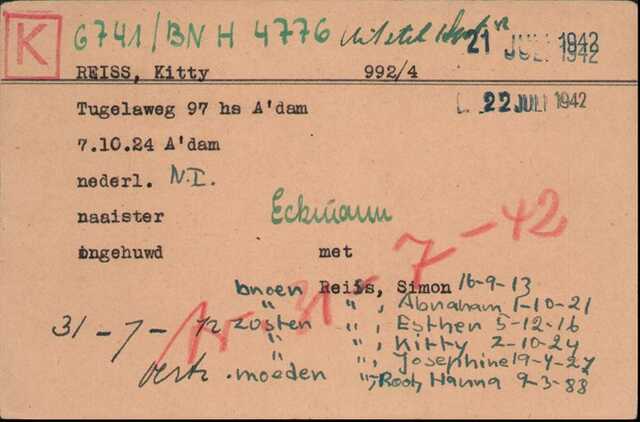 K 6741/BN H 4776 21 JULI 1942
REISS, Kitty 992/4
Tugelaweg 97 hs A'dam 22 JULI 1942
7.10.24 A'dam
nederl. N.I.
naaister Eckmann
ongehuwd met
31-7-42
broer Reiss, Simon 16-9-13
" ", Abraham 1-10-21
31-7-42 zuster " ", Esther 5-12-16
" ", Kitty 2-10-24
" ", Josephine 19-4-27
moeder ", Hanna 9-3-88